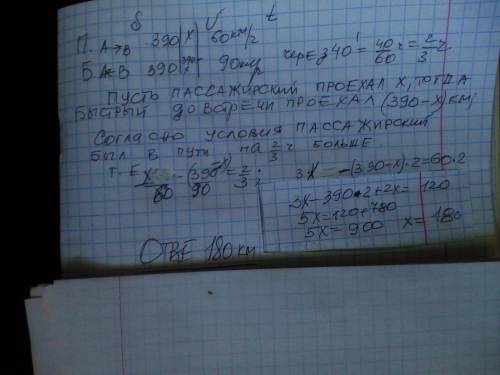 S V t
П. A→B 390 | x | 60 км/ч
Б. A←B 390 | 390-x | 90 км/ч через 40' = 40/60 ч = 2/3 ч
ПУСТЬ ПАССАЖИРСКИЙ ПРОЕХАЛ X, ТОГДА
БЫСТРЫЙ ДО ВСТРЕЧИ ПРОЕХАЛ (390-x) КМ;
СОГЛАСНО УСЛОВИЯ ПАССАЖИРСКИЙ
БЫЛ В ПУТИ НА 2/3 ч БОЛЬШЕ
Т. Е x/60 - (390-x)/90 = 2/3; 3x - (390-x)·2=60·2
3x-390·2+2x= 120
5x=120+780
5x=900 x=180
ОТВЕ 180 км